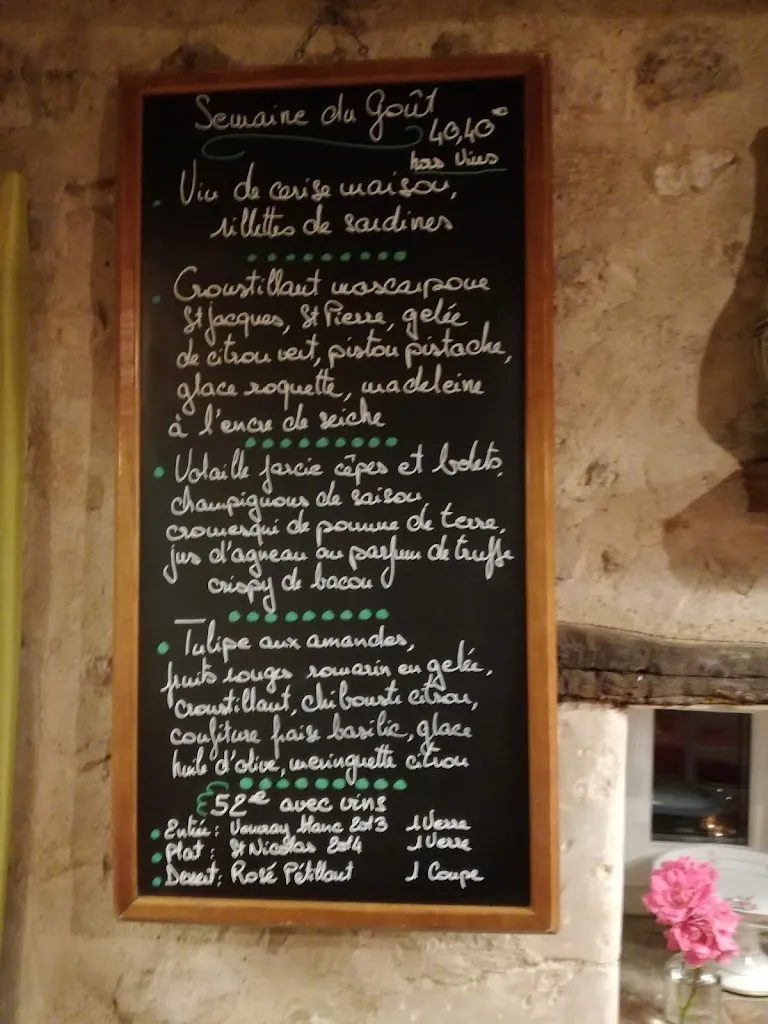 Semaine du Goût
40,40€
hors Vins
Vin de cerise maison,
rillettes de sardines
Croustillant mascarpone
St Jacques, St Pierre, gelée
de citron vert, pistou pistache,
glace roquette, madeleine
à l'encre de seiche
Volaille farcie cêpes et bolets,
champignons de saison,
cromesqui de pomme de terre,
jus d'agneau au parfum de truffe
crispy de bacon
Tulipe aux amandes,
fruits rouges romarin en gelée,
croustillant, chibouste citron,
confiture fraise basilic, glace
huile d'olive, meringuette citron
52€ avec vins
Entrée : Vouvray blanc 2013 1 Verre
Plat : St Nicolas 2014 1 Verre
Dessert : Rosé Pétillant 1 Coupe